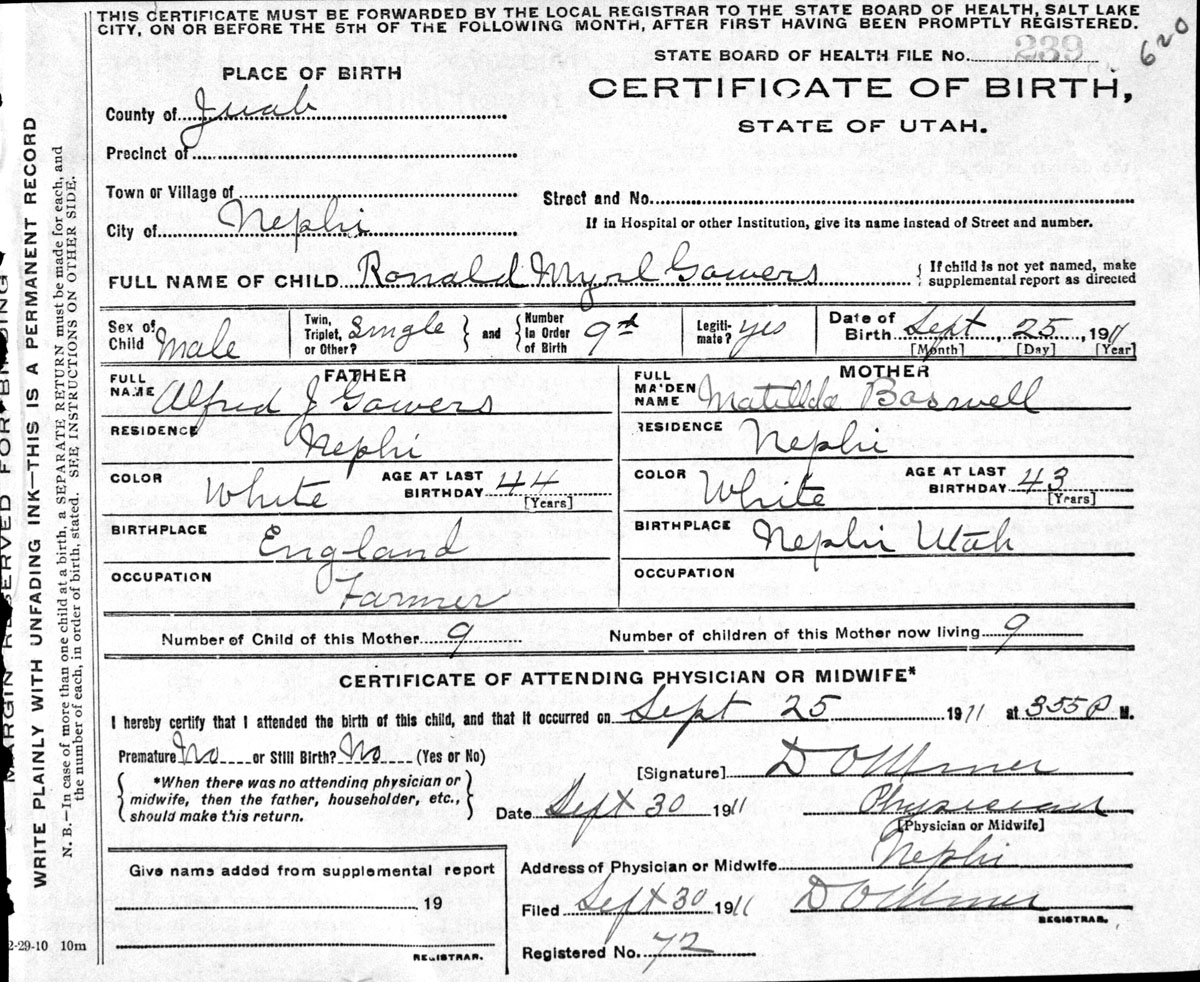 THIS CERTIFICATE MUST BE FORWARDED BY THE LOCAL REGISTRAR TO THE STATE BOARD OF HEALTH, SALT LAKE
CITY, ON OR BEFORE THE 5TH OF THE FOLLOWING MONTH, AFTER FIRST HAVING BEEN PROMPTLY REGISTERED.
620
STATE BOARD OF HEALTH FILE No. 239
PLACE OF BIRTH
CERTIFICATE OF BIRTH,
STATE OF UTAH.
County of Juab
Precinct of
Town or Village of
Street and No.
City of Nephi
If in Hospital or other Institution, give its name instead of Street and number.
FULL NAME OF CHILD Ronald Myrl Gowers
{ If child is not yet named, make
supplemental report as directed
Sex of
Child Male
Twin,
Triplet,
or Other? Single
and
Number
in Order
of Birth 9th
Legiti-
mate? yes
Date of
Birth Sept 25, 1911
[Month] [Day] [Year]
FATHER
FULL
NAME Alfred J Gowers
RESIDENCE Nephi
COLOR White AGE AT LAST
BIRTHDAY 44
[Years]
BIRTHPLACE England
OCCUPATION Farmer
MOTHER
FULL
MAIDEN
NAME Matilda Boswell
RESIDENCE Nephi
COLOR White AGE AT LAST
BIRTHDAY 43
[Years]
BIRTHPLACE Nephi Utah
OCCUPATION
Number of Child of this Mother 9 Number of children of this Mother now living 9
CERTIFICATE OF ATTENDING PHYSICIAN OR MIDWIFE*
I hereby certify that I attended the birth of this child, and that it occurred on Sept 25 1911 at 355 P M.
Premature No or Still Birth? No (Yes or No)
*When there was no attending physician or
midwife, then the father, householder, etc.,
should make this return.
[Signature] D O Miner
Date Sept 30 1911 Physician
[Physician or Midwife]
Address of Physician or Midwife Nephi
Filed Sept 30 1911 D O Miner
REGISTRAR.
Registered No. 72
Give name added from supplemental report
19
REGISTRAR.
2-29-10 10m
MARGIN RESERVED FOR BINDING
WRITE PLAINLY WITH UNFADING INK—THIS IS A PERMANENT RECORD
N. B.—In case of more than one child at a birth, a SEPARATE RETURN must be made for each, and
the number of each, in order of birth, stated. SEE INSTRUCTIONS ON OTHER SIDE.